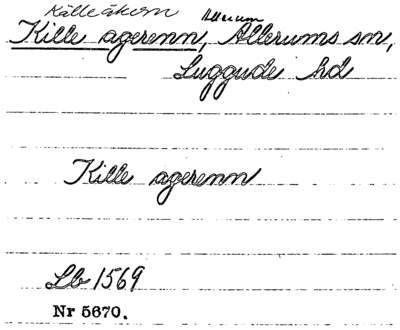 Källeåkern Allerum
Kille agerenn, Allerums sn,
Luggude hd
Kille agerenn
Lb 1569
Nr 5670.